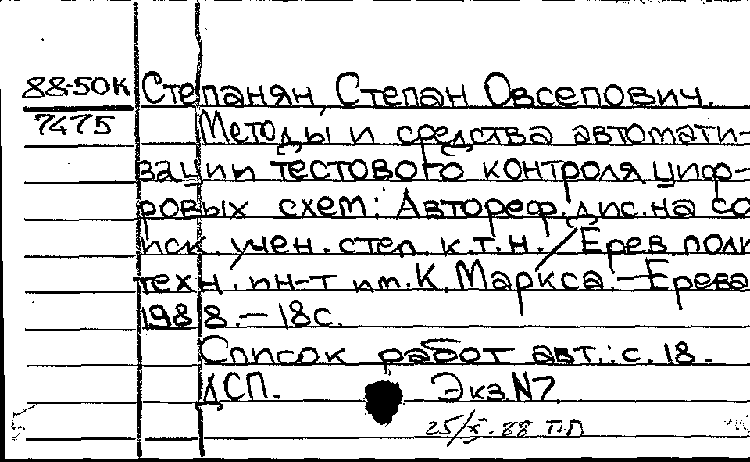 88-50К Степанян, Степан Овсепович.
7475 Методы и средства автомати-
зации тестового контроля циф-
ровых схем: Автореф. дис. на со
иск. учен. степ. к.т.н. / Ерев. поли
техн. ин-т им. К. Маркса. — Ерева
1988. — 18 с.
Список работ авт.: с. 18.
ДСП. Экз N7
25/X-88 ПЛ